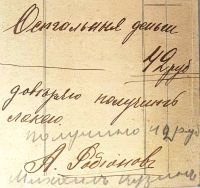 Остальныя деньги
42 руб
доверяю получить
лакею
получено 42 руб
А. Родіонов
Михаилъ